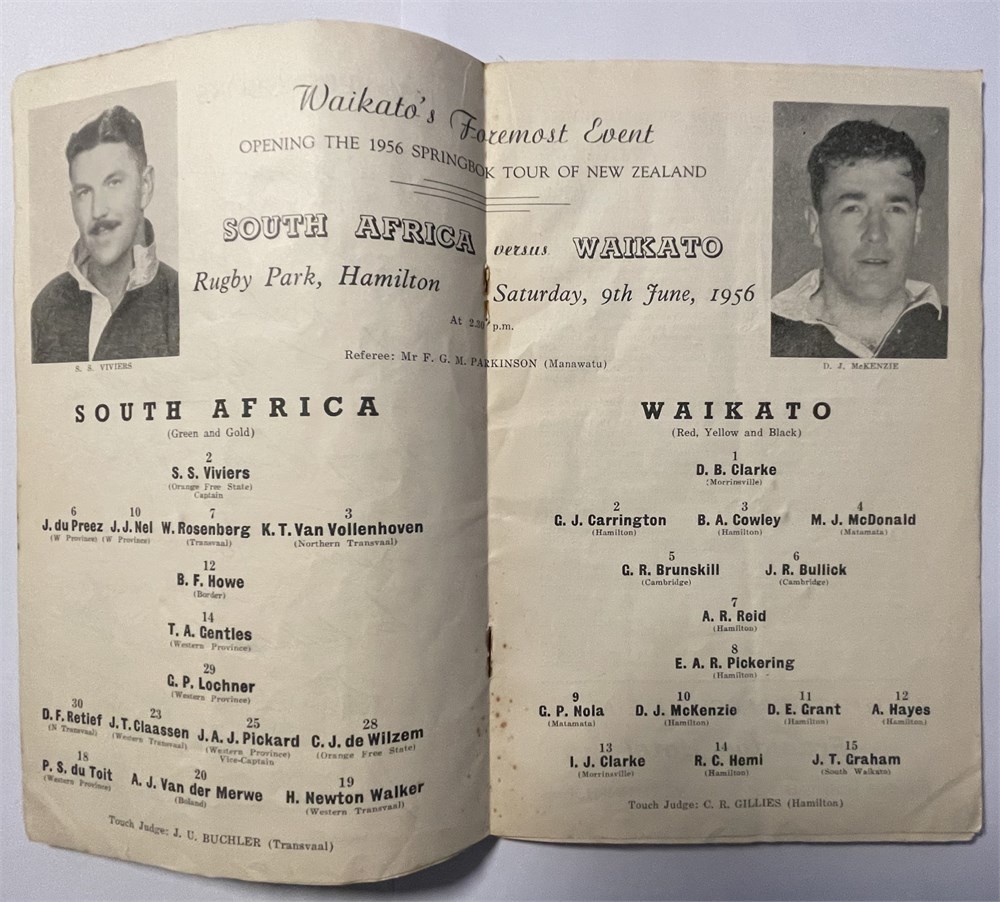 Waikato's Foremost Event
OPENING THE 1956 SPRINGBOK TOUR OF NEW ZEALAND
SOUTH AFRICA versus WAIKATO
Rugby Park, Hamilton Saturday, 9th June, 1956
At 2.30 p.m.
Referee: Mr F. G. M. PARKINSON (Manawatu)
S. S. VIVIERS
D. J. McKENZIE
SOUTH AFRICA
(Green and Gold)
2
S. S. Viviers
(Orange Free State)
Captain
6 10 7 3
J. du Preez J. J. Nel W. Rosenberg K. T. Van Vollenhoven
(W Province) (W Province) (Transvaal) (Northern Transvaal)
12
B. F. Howe
(Border)
14
T. A. Gentles
(Western Province)
29
G. P. Lochner
(Western Province)
30 23 25 28
D. F. Retief J. T. Claassen J. A. J. Pickard C. J. de Wilzem
(N Transvaal) (Western Transvaal) (Western Province) (Orange Free State)
Vice-Captain
18 20 19
P. S. du Toit A. J. Van der Merwe H. Newton Walker
(Western Province) (Boland) (Western Transvaal)
Touch Judge: J. U. BUCHLER (Transvaal)
WAIKATO
(Red, Yellow and Black)
1
D. B. Clarke
(Morrinsville)
2 3 4
G. J. Carrington B. A. Cowley M. J. McDonald
(Hamilton) (Hamilton) (Matamata)
5 6
G. R. Brunskill J. R. Bullick
(Cambridge) (Cambridge)
7
A. R. Reid
(Hamilton)
8
E. A. R. Pickering
(Hamilton)
9 10 11 12
G. P. Nola D. J. McKenzie D. E. Grant A. Hayes
(Matamata) (Hamilton) (Hamilton) (Hamilton)
13 14 15
I. J. Clarke R. C. Hemi J. T. Graham
(Morrinsville) (Hamilton) (South Waikato)
Touch Judge: C. R. GILLIES (Hamilton)